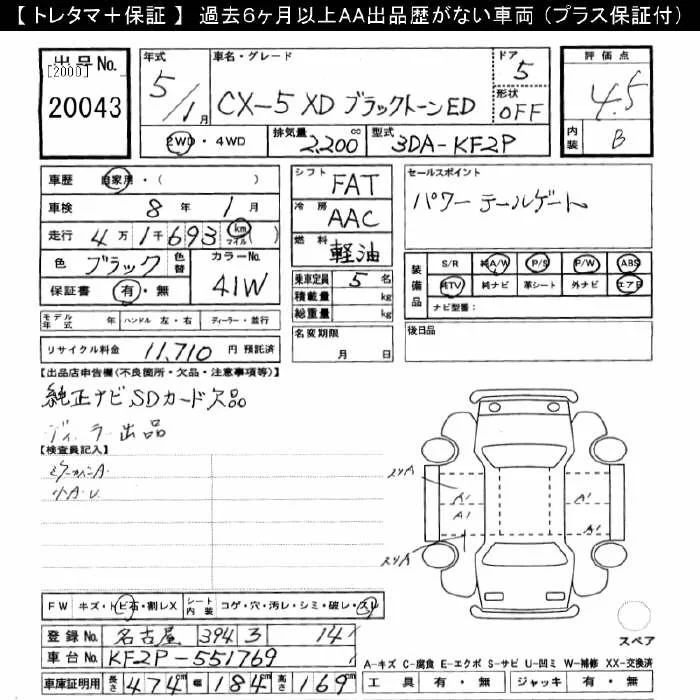 【 トレタマ＋保証 】 過去6ヶ月以上AA出品歴がない車両（プラス保証付）
出品No. [2000] 20043
年式 5/1月
車名・グレード CX-5 XD ブラックトーンED
ドア 5
形状 OFF
評価点 4.5
内装 B
2WD・4WD 排気量 2,200cc 型式 3DA-KF2P
車歴 自家用・( )
車検 8年 1月
走行 4万1千693 km マイル
色 ブラック 色替 カラーNo. 41W
保証書 有・無
モデル年式 年 ハンドル 左・右 ディーラー・並行
リサイクル料金 11,710 円 預託済
シフト FAT
冷房 AAC
燃料 軽油
乗車定員 5 名
積載量 kg
総重量 kg
名変期限 月 日
セールスポイント
パワーテールゲート
装備品 S/R 純A/W P/S P/W ABS
純TV 純ナビ 革シート 外ナビ エアB
ナビ型番:
後日品
【出品店申告欄(不良箇所・欠品・注意事項等)】
純正ナビSDカード欠品
ディーラー出品
【検査員記入】
ミラーカバーA.
小A.U.
2ヶA
A1
A1
A1
A1
2ヶA
スペア
FW キズ・トビ石・割レX シート内装 コゲ・穴・汚レ・シミ・破レ・スレ
登録No. 名古屋 394 3 14
車台No. KF2P-551769
車庫証明用 長さ 474cm 幅 184cm 高さ 169cm
A-キズ C-腐食 E-エクボ S-サビ U-凹ミ W-補修 XX-交換済
工具 有・無 ジャッキ 有・無